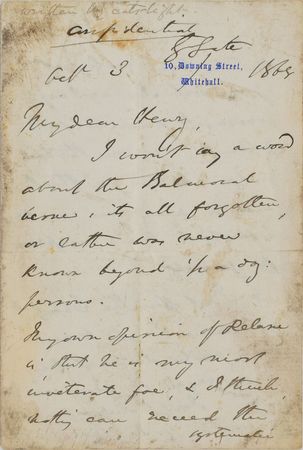 written by
confidential
G Gate
10, Downing Street,
Whitehall.
Octr 3 1868
My dear Henry,
I won't say a word
about the Balmoral
it's all forgotten,
or rather was never
known beyond ½ a doz:
persons.
My own opinion of Delane
is, that he is my most
inveterate foe, &, I think,
nothing can exceed the
systematic